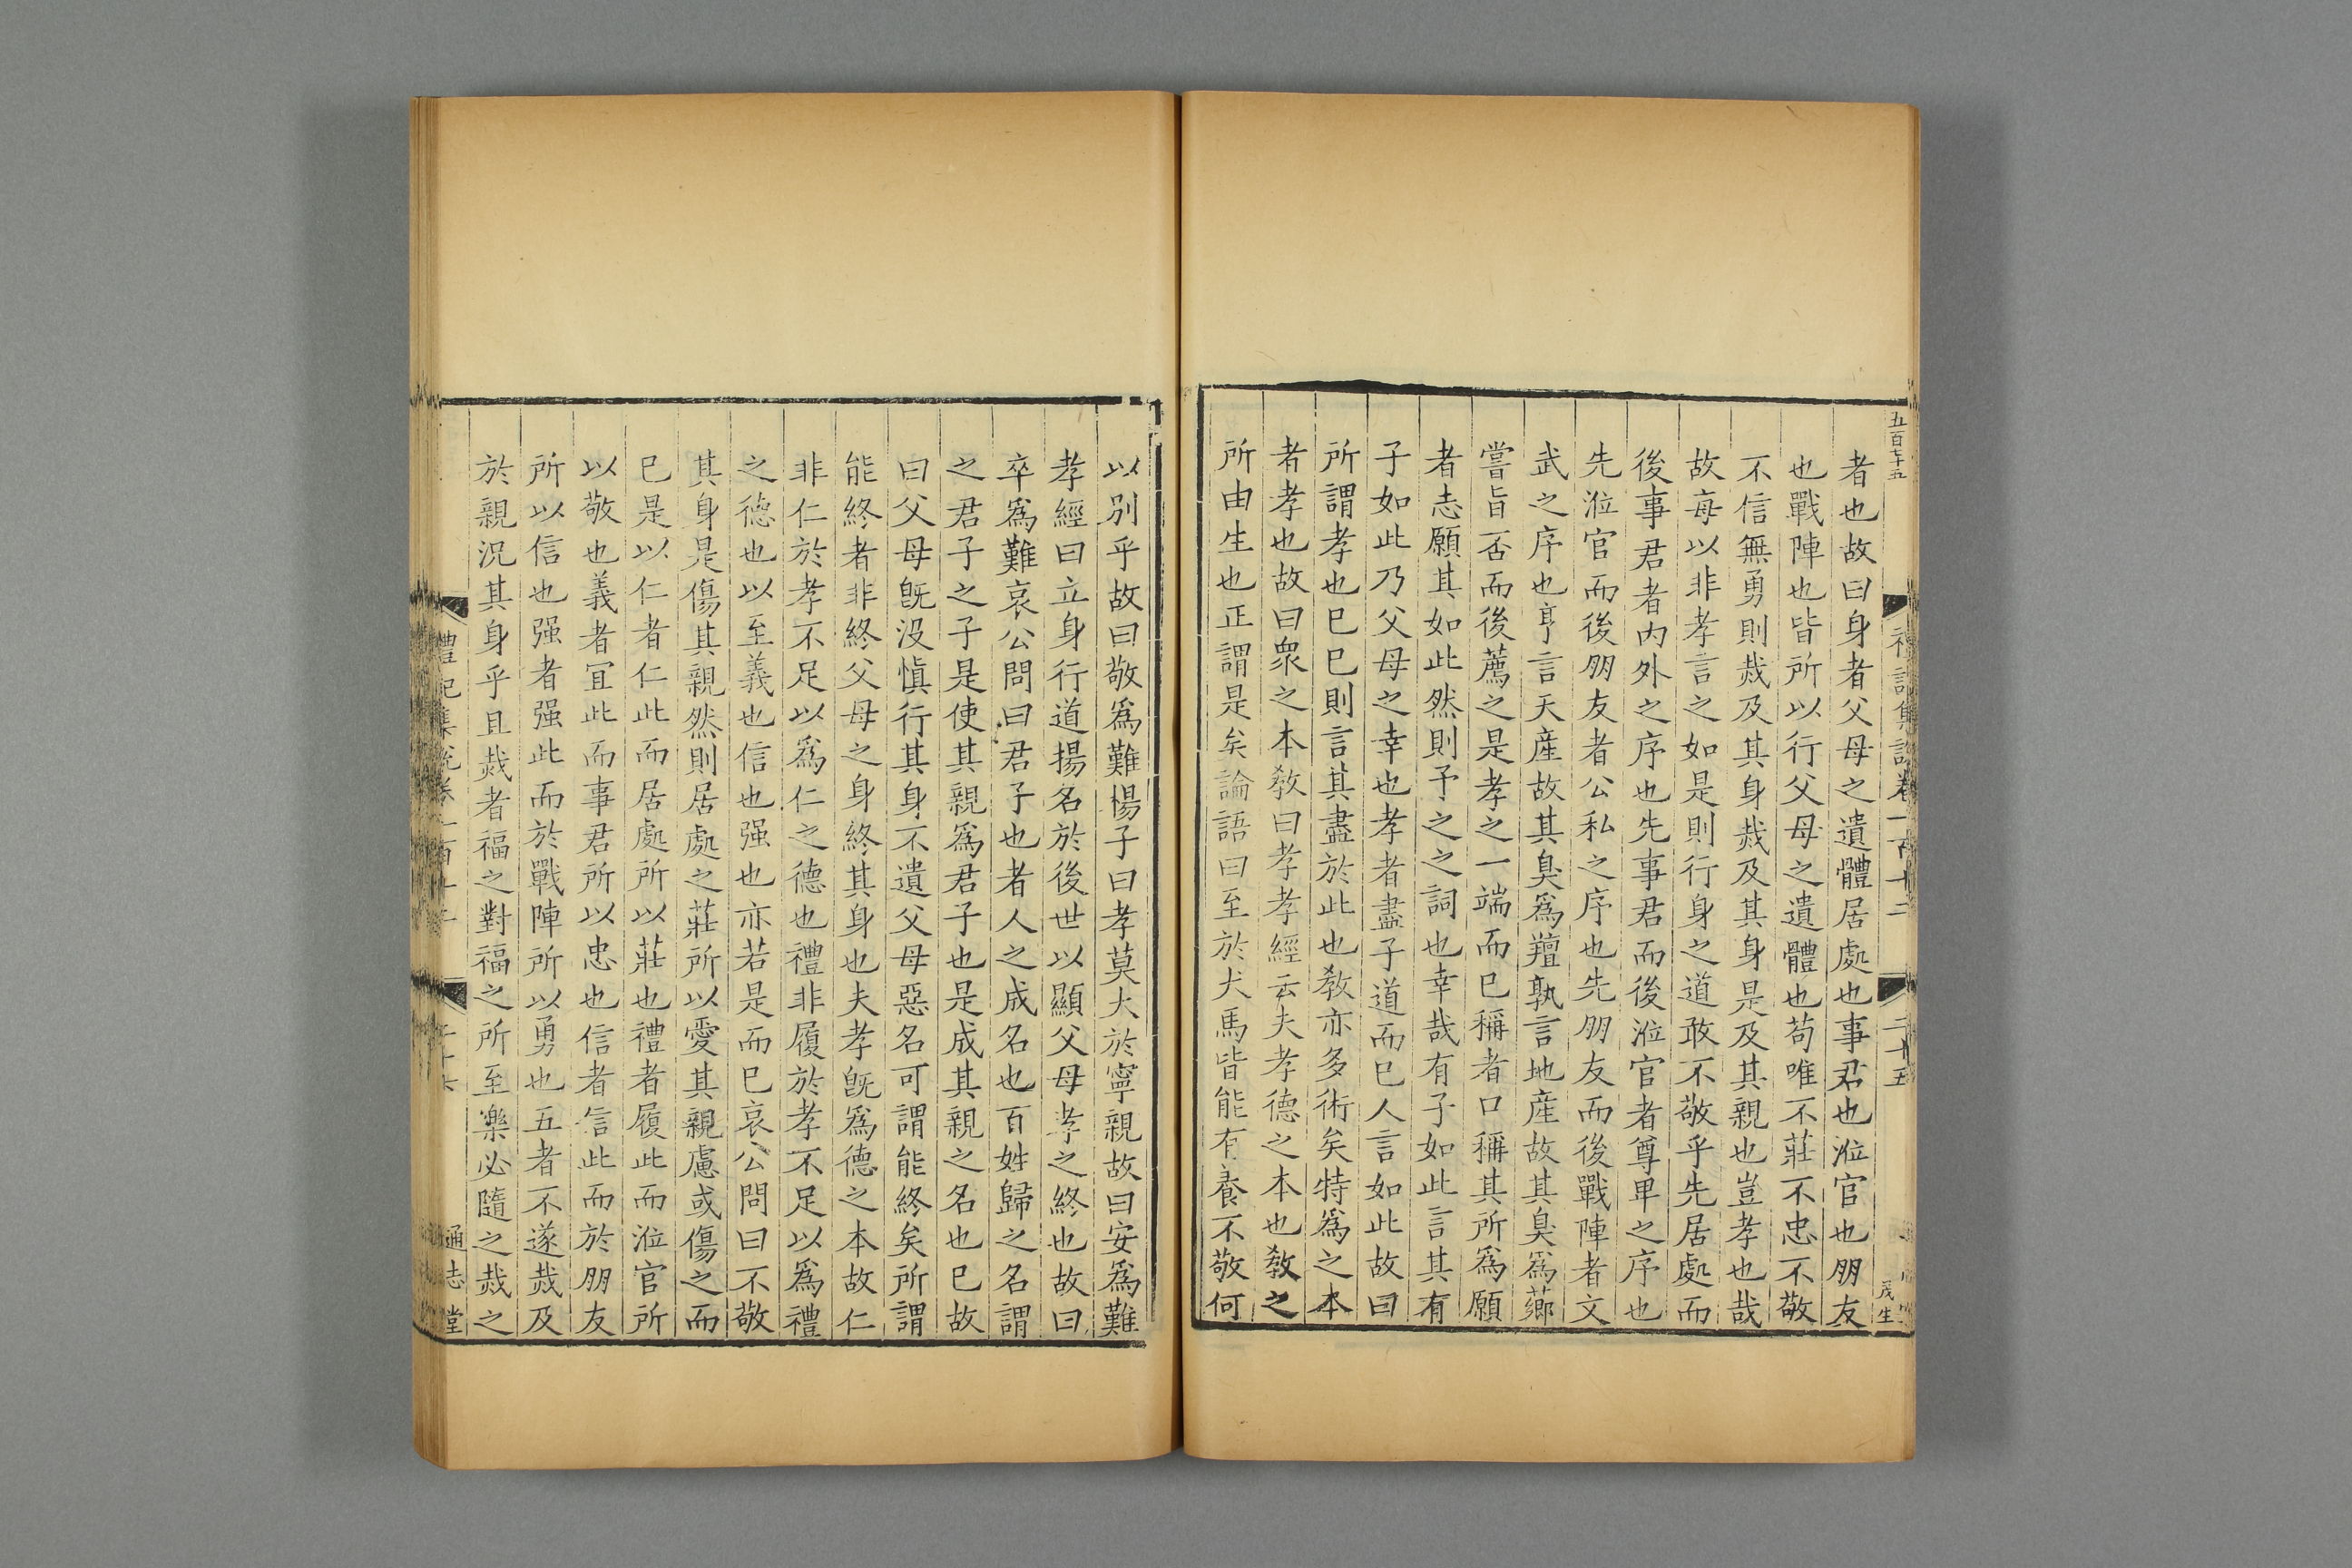 五百七十五
禮記集說卷一百十二
二十五
茂生
者也故曰身者父母之遺體居處也事君也涖官也朋友
也戰陣也皆所以行父母之遺體也苟唯不莊不忠不敬
不信無勇則烖及其身烖及其身是及其親也豈孝也哉
故每以非孝言之如是則行身之道敢不敬乎先居處而
後事君者内外之序也先事君而後涖官者尊卑之序也
先涖官而後朋友者公私之序也先朋友而後戰陣者文
武之序也亨言天産故其臭爲羶孰言地産故其臭爲薌
嘗旨否而後薦之是孝之一端而已稱者口稱其所爲願
者志願其如此然則予之之詞也幸哉有子如此言其有
子如此乃父母之幸也孝者盡子道而已人言如此故曰
所謂孝也已已則言其盡於此也教亦多術矣特爲之本
者孝也故曰衆之本教曰孝孝經云夫孝德之本也教之
所由生也正謂是矣論語曰至於犬馬皆能有養不敬何
以別乎故曰敬爲難揚子曰孝莫大於寧親故曰安爲難
孝經曰立身行道揚名於後世以顯父母孝之終也故曰
卒爲難哀公問曰君子也者人之成名也百姓歸之名謂
之君子之子是使其親爲君子也是成其親之名也已故
曰父母旣没愼行其身不遺父母惡名可謂能終矣所謂
能終者非終父母之身終其身也夫孝旣爲德之本故仁
非仁於孝不足以爲仁之德也禮非履於孝不足以爲禮
之德也以至義也信也强也亦若是而已哀公問曰不敬
其身是傷其親然則居處之莊所以愛其親慮或傷之而
已是以仁者仁此而居處所以莊也禮者履此而涖官所
以敬也義者宜此而事君所以忠也信者信此而於朋友
所以信也强者强此而於戰陣所以勇也五者不遂烖及
於親况其身乎且烖者福之對福之所至樂必隨之烖之
禮記集說卷一百十二
二十六
通志堂